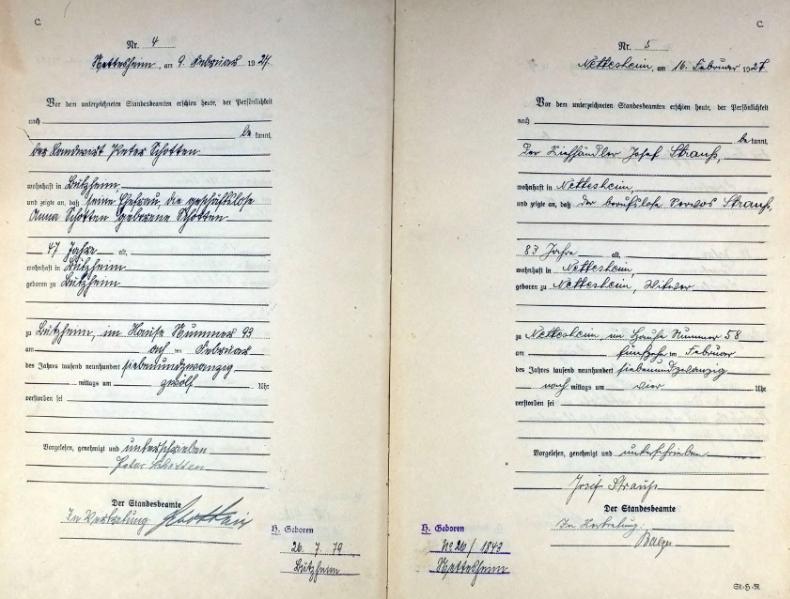 C.
Nr. 4
Nettesheim, am 9. Februar 1927.
Vor dem unterzeichneten Standesbeamten erschien heute, der Persönlichkeit
nach
be kannt,
der Landwirt Peter Schotten
wohnhaft in Bützheim
und zeigte an, daß seine Ehefrau, die geschäftslose
Anna Schotten geborene Schotten
47 Jahre alt,
wohnhaft in Bützheim
geboren zu Bützheim
zu Bützheim, im Hause Nummer 93
am acht ten Februar
des Jahres tausend neunhundert siebenundzwanzig
mittags um zwölf Uhr
verstorben sei
Vorgelesen, genehmigt und unterschrieben
Peter Schotten
Der Standesbeamte
In Vertretung
H. Geboren
26. 7. 79
Bützheim
C.
Nr. 5
Nettesheim, am 16. Februar 1927
Vor dem unterzeichneten Standesbeamten erschien heute, der Persönlichkeit
nach
be kannt,
Der Viehhändler Josef Strauß,
wohnhaft in Nettesheim,
und zeigte an, daß der berufslose Strauß,
83 Jahre alt,
wohnhaft in Nettesheim,
geboren zu Nettesheim, Witwer
zu Nettesheim, im Hause Nummer 58
am fünfzehn ten Februar
des Jahres tausend neunhundert siebenundzwanzig
nach mittags um vier Uhr
verstorben sei
Vorgelesen, genehmigt und unterschrieben
Josef Strauß
Der Standesbeamte
In Vertretung:
H. Geboren
No 26 / 1843
Nettesheim
St-H-A